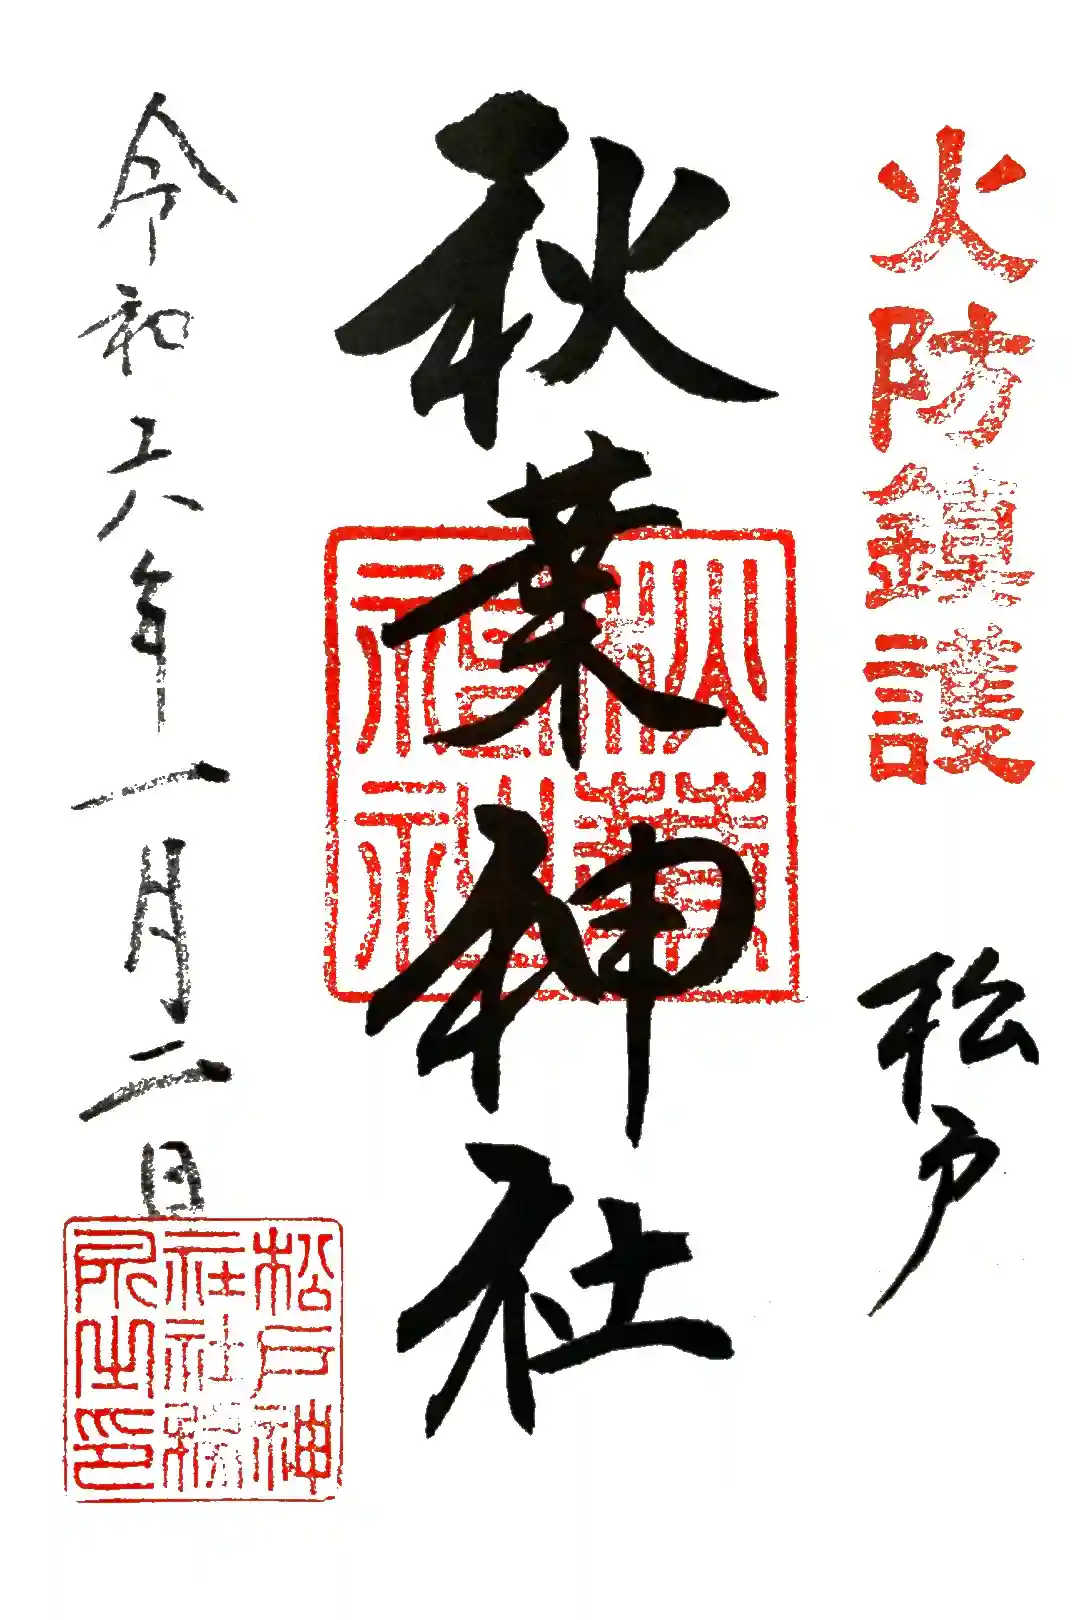 火防鎮護
松戸
秋葉神社
秋葉
神社
令和六年一月二日
松戸神
社社務
所之印